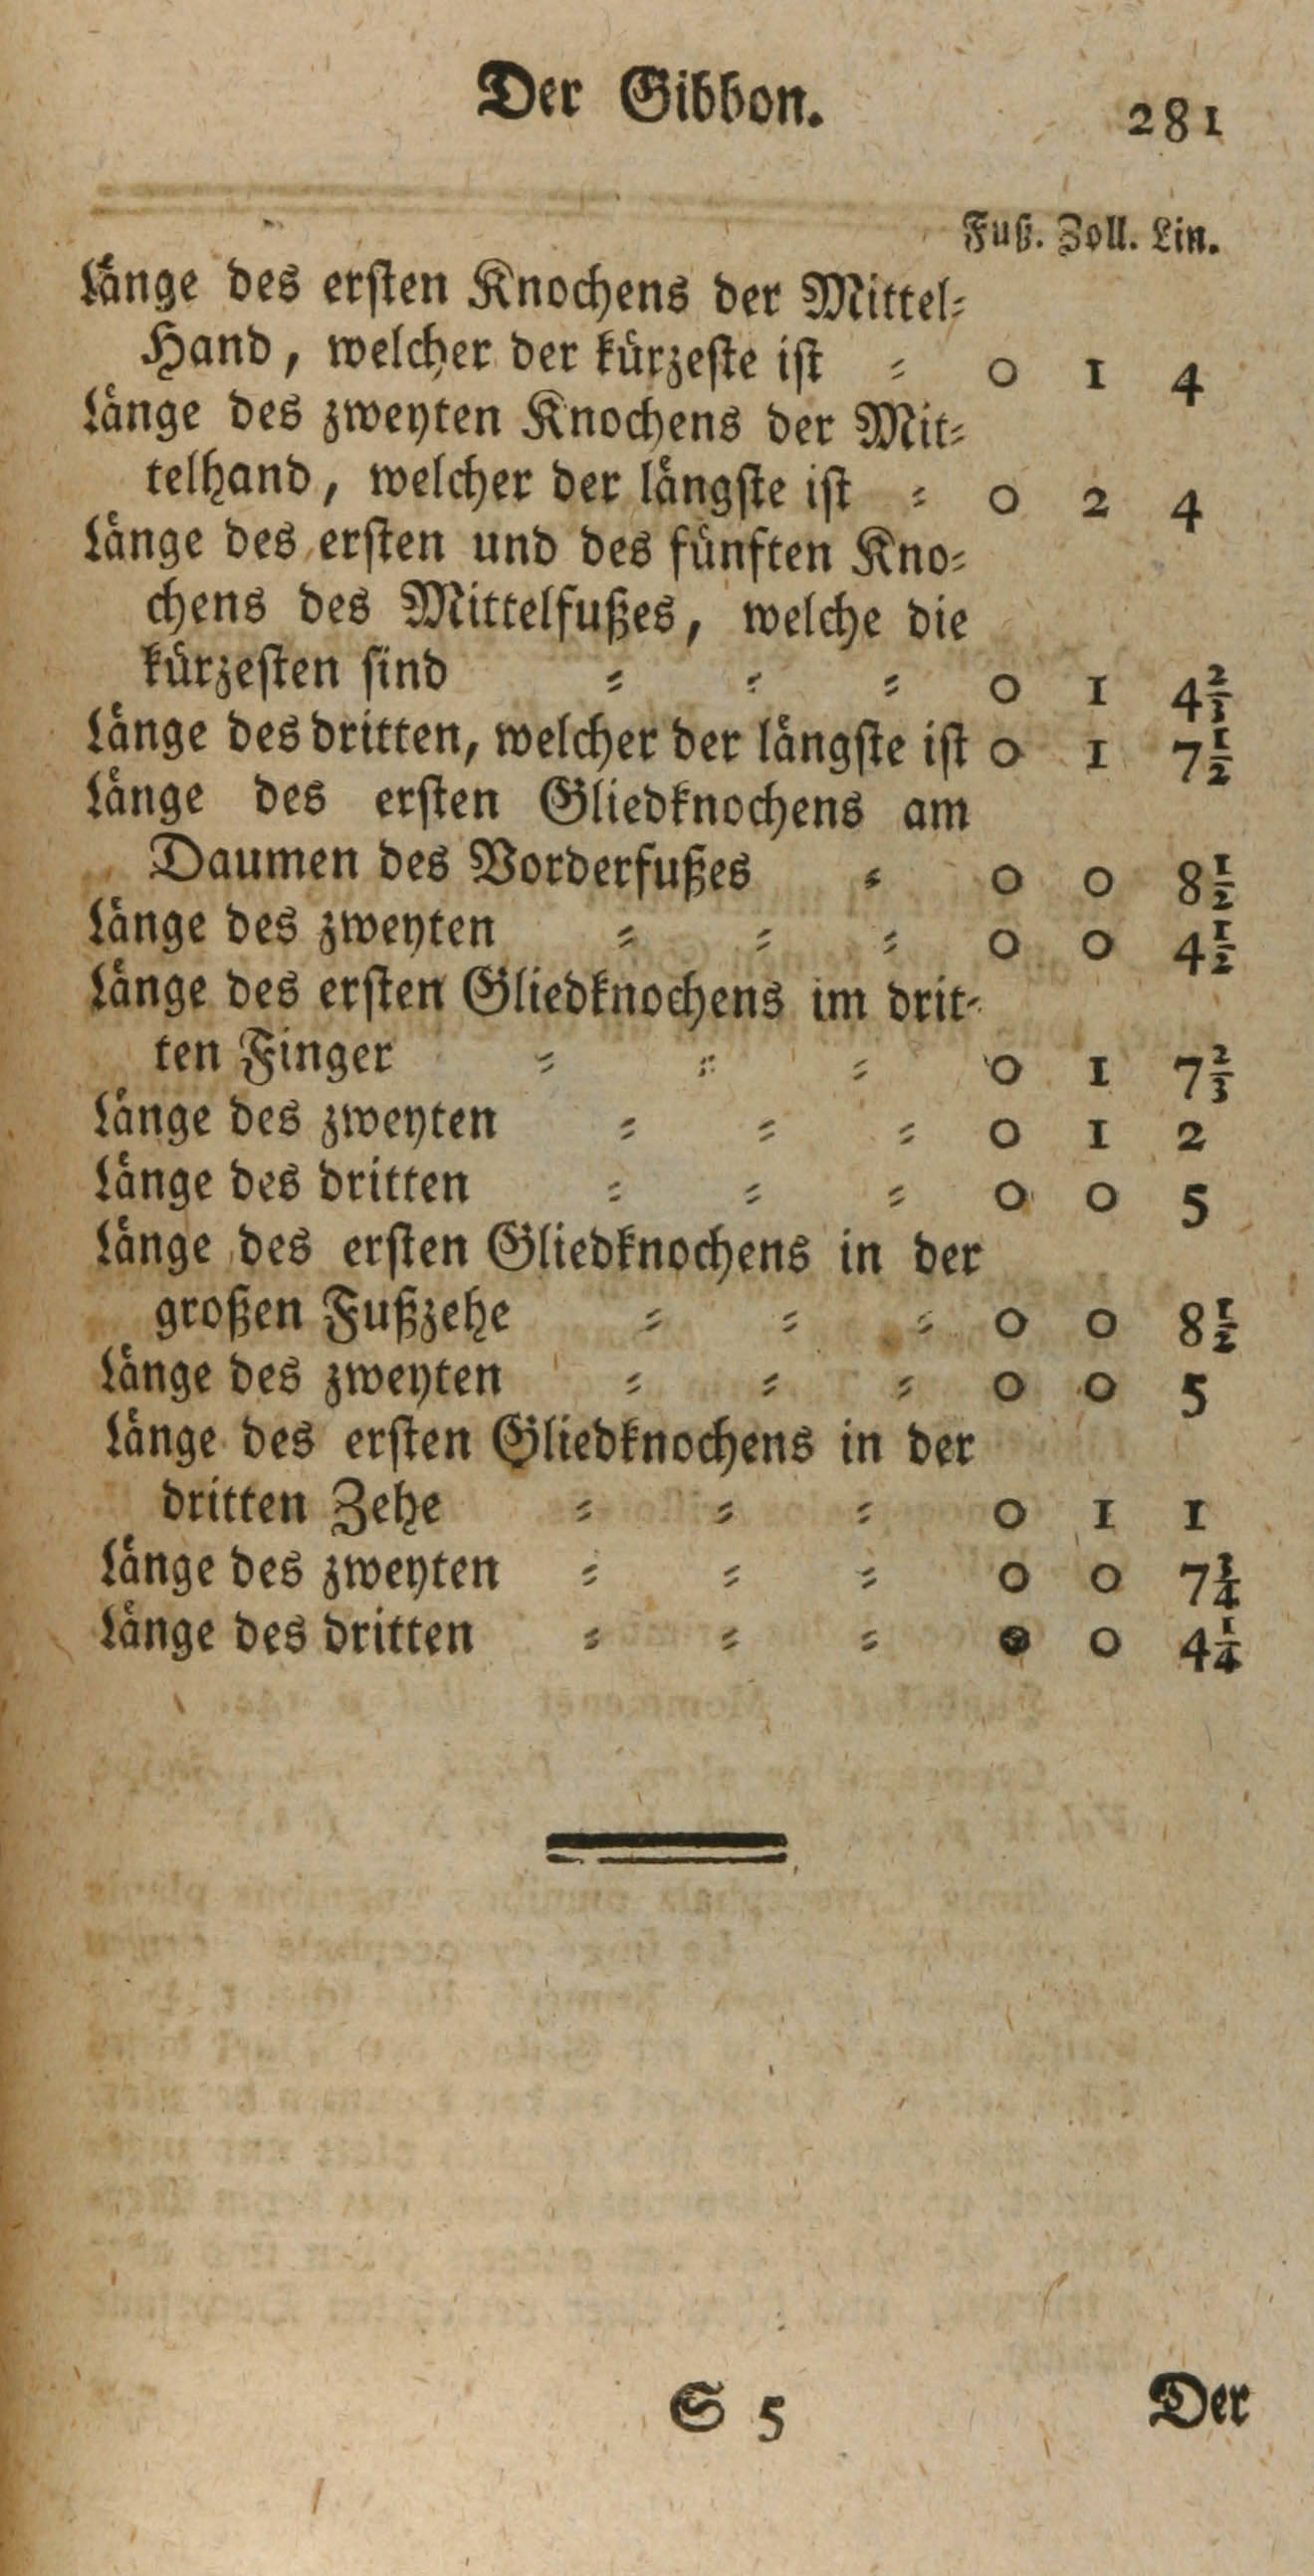 Der Gibbon. 281
Fuß. Zoll. Lin.
Länge des ersten Knochens der Mittel-
Hand, welcher der kürzeste ist = 0 1 4
Länge des zweyten Knochens der Mit-
telhand, welcher der längste ist = 0 2 4
Länge des ersten und des fünften Kno-
chens des Mittelfußes, welche die
kürzesten sind = = = 0 1 4⅔
Länge des dritten, welcher der längste ist 0 1 7½
Länge des ersten Gliedknochens am
Daumen des Vorderfußes = 0 0 8½
Länge des zweyten = = = 0 0 4½
Länge des ersten Gliedknochens im drit-
ten Finger = = = 0 1 7⅔
Länge des zweyten = = = 0 1 2
Länge des dritten = = = 0 0 5
Länge des ersten Gliedknochens in der
großen Fußzehe = = = 0 0 8½
Länge des zweyten = = = 0 0 5
Länge des ersten Gliedknochens in der
dritten Zehe = = = 0 1 1
Länge des zweyten = = = 0 0 7¾
Länge des dritten = = = 0 0 4¼
S 5 Der